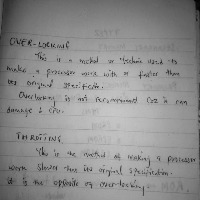 OVER-LOCKING
This is a method or technic used to
make a processor work with it faster than
its original specification.
Overlocking is not recommend coz it can
damage a CPU.
THROTTING
This is the method of making a processor
work slower than its original specification.
It is the opposite of over-locking.